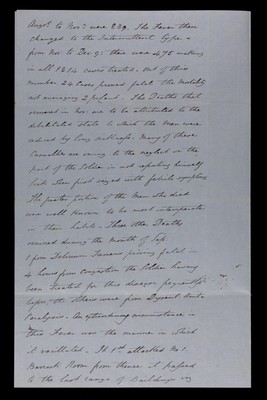 Augst to Novr were 839. The Fever then
changed to the Intermittent Type &
from Novr to Decr 31 there were 475 making
in all 1314 cases treated. Out of this
number 26 Cases proved fatal the mortality
not averaging 2 pr Cent. The Deaths that
occurred in Novr are to be attributed to the
debilitated state to which the men were
reduced by long sickness. Many of these
Casualties are owing to the neglect on the
part of the Soldier in not reporting himself
sick when first seized with febrile symptoms
The greater portion of the Men who died
were well known to be most intemperate
in their habits. Three other Deaths
occurred during the month of Sep.
1 from Delirium Tremens proving fatal in
4 hours from congestion the Soldier having
been treated for this disease frequently
before, & the others were from Dysent. Acuta
Paralysis. An extraordinary circumstance in
this Fever was the manner in which
it vacillated. It 1st attacked No 1.
Barrack Room from thence it passed
to the last range of Buildings